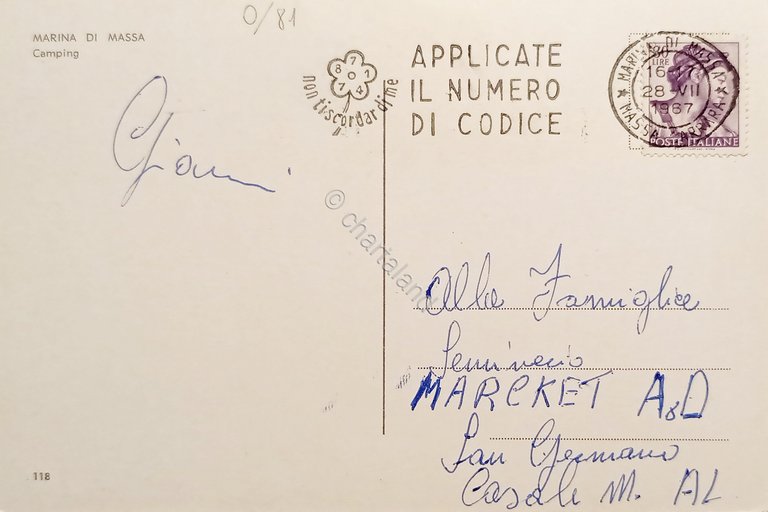 O/81
MARINA DI MASSA
Camping
Gianni
nontiscordardime
APPLICATE
IL NUMERO
DI CODICE
LIRE
MARINA DI MASSA
16-17
28-VII
1967
MASSA CARRARA
POSTE ITALIANE
© chartaland
Alla Famiglia
MARCKET A&D
San Germano
Casale M. AL
118